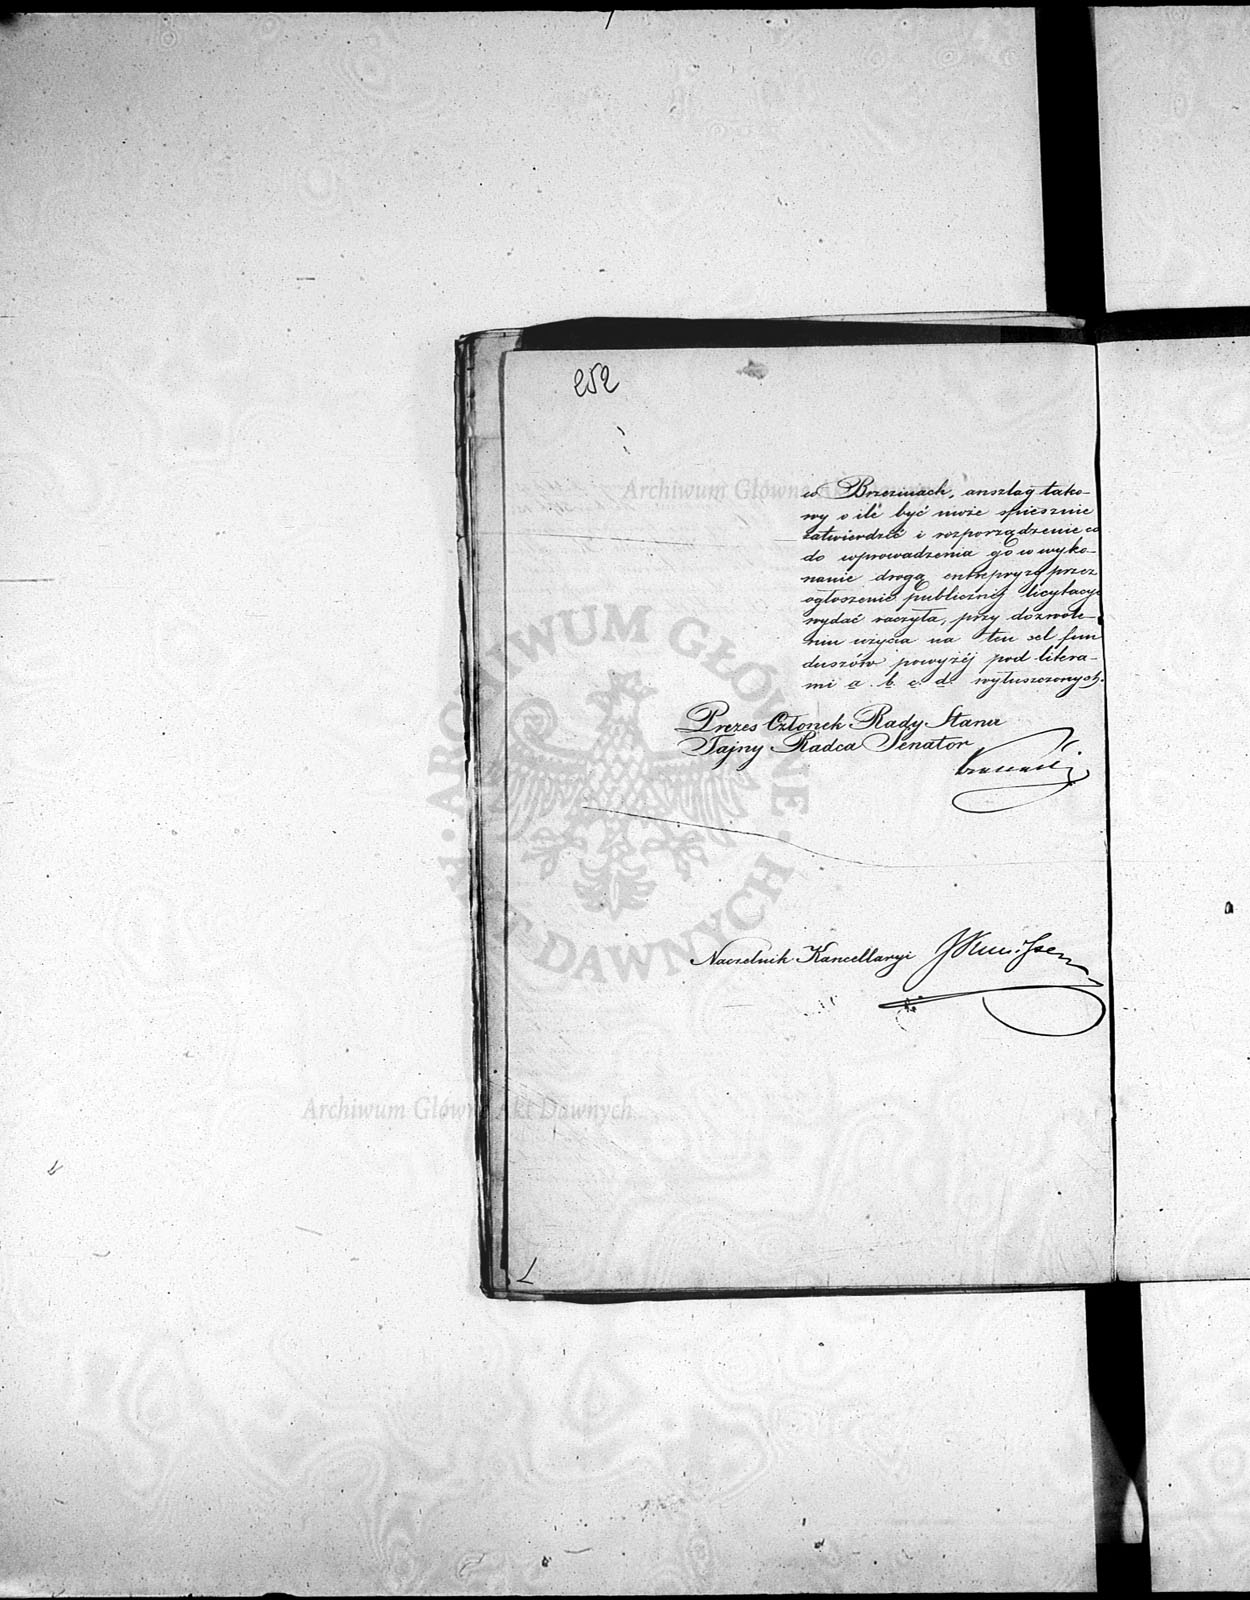 252
w Brzezinach, anszlag tako-
wy o ile być może spiesznie
zatwierdzić i rozporządzenie co
do wprowadzenia go w wyko-
nanie drogą entrepryzy przez
ogłoszenie publicznéj licytacyi
wydać raczyła, przy dozwole-
niu użycia na ten cel fun
duszów powyżéj pod litera-
mi a. b. c. d. wyłuszczonych.
Prezes Członek Rady Stanu
Tajny Radca Senator
Naczelnik Kancellaryi
Archiwum Główne Akt Dawnych
ARCHIWUM GŁÓWNE AKT DAWNYCH
Archiwum Główne Akt Dawnych